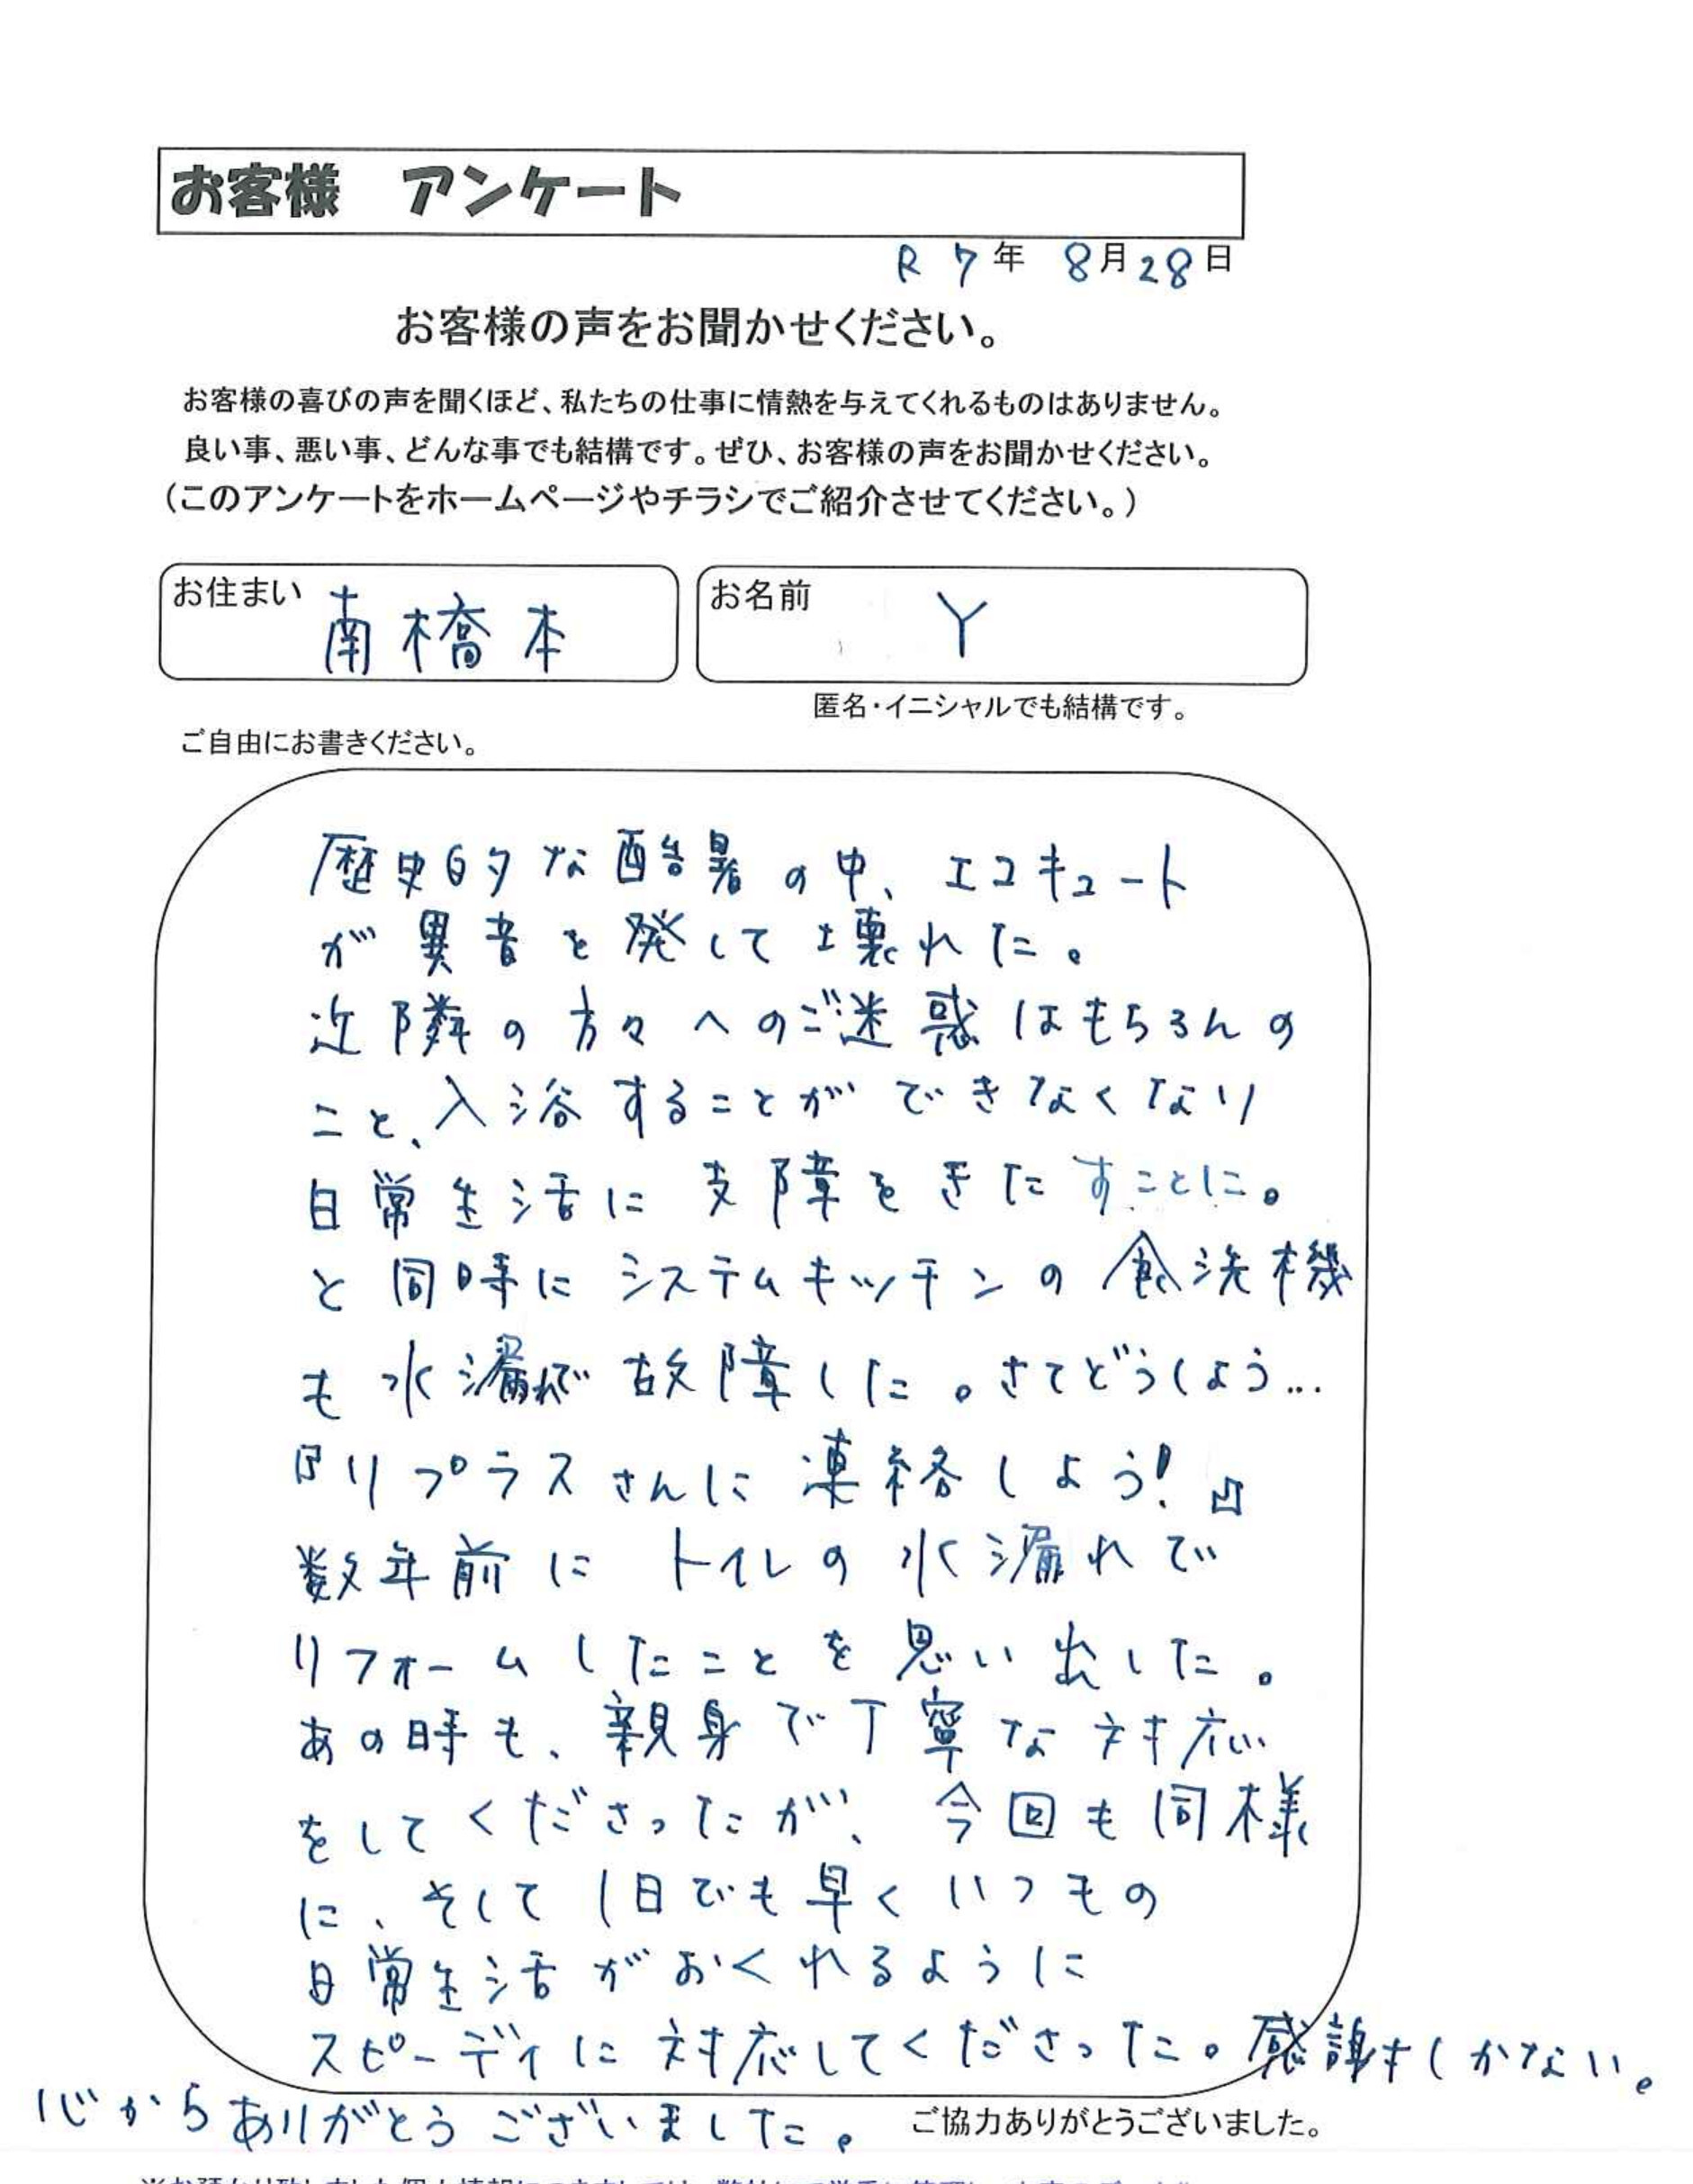 お客様 アンケート
R7年 8月28日
お客様の声をお聞かせください。
お客様の喜びの声を聞くほど、私たちの仕事に情熱を与えてくれるものはありません。
良い事、悪い事、どんな事でも結構です。ぜひ、お客様の声をお聞かせください。
(このアンケートをホームページやチラシでご紹介させてください。)
お住まい 南橋本 お名前 Y
匿名・イニシャルでも結構です。
ご自由にお書きください。
歴史的な酷暑の中、エコキュート
が異音を発して壊れた。
近隣の方々へのご迷惑はもちろんの
こと、入浴することができなくなり
日常生活に支障をきたすことに。
と同時にシステムキッチンの食洗機
も水漏れで故障した。さてどうしよう…
『リプラスさんに連絡しよう!』
数年前にトイレの水漏れで
リフォームしたことを思い出した。
あの時も、親身で丁寧な対応
をしてくださったが、今回も同様
に、そして1日でも早くいつもの
日常生活がおくれるように
スピーディに対応してくださった。感謝しかない。
心からありがとうございました。
ご協力ありがとうございました。